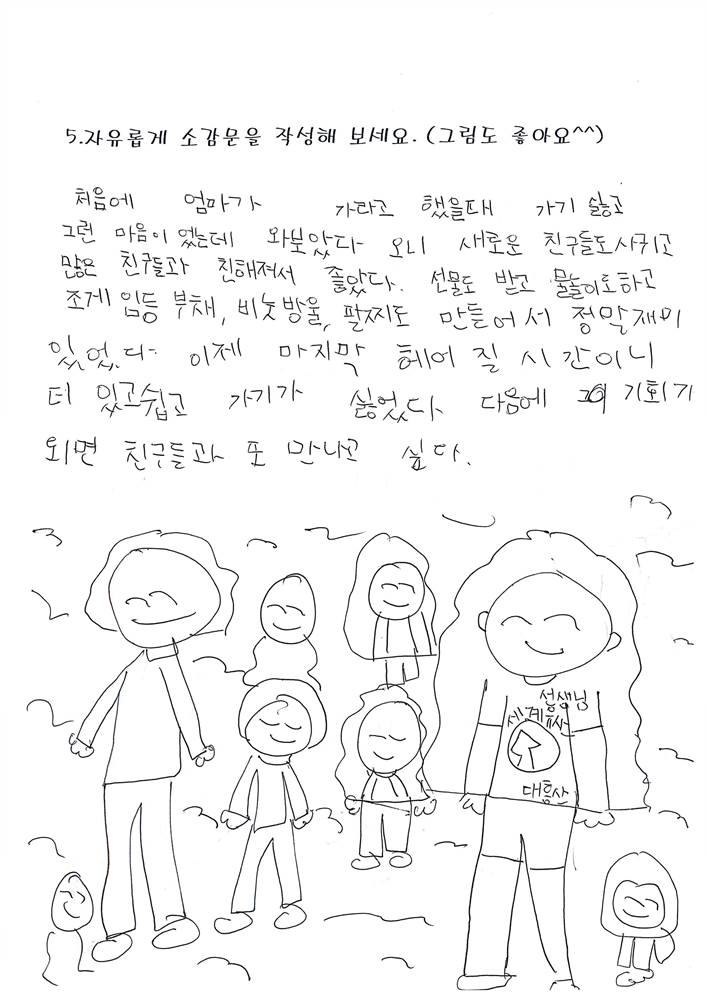 5.자유롭게 소감문을 작성해 보세요. (그림도 좋아요^^)
처음에 엄마가 가라고 했을때 가기 싫고
그런 마음이 었는데 와보았다 오니 새로운 친구들도사귀고
많은 친구들과 친해져서 좋았다. 선물도 받고 물놀이도하고
조게 임등 부채, 비눗방울, 팔찌도 만들어서 정말재미
있었다 이제 마지막 헤어 질 시간이니
더 있고쉽고 가기가 싫었다 다음에 기회기
되면 친구들과 또 만나고 싶다.
성생님
세계
대흠산